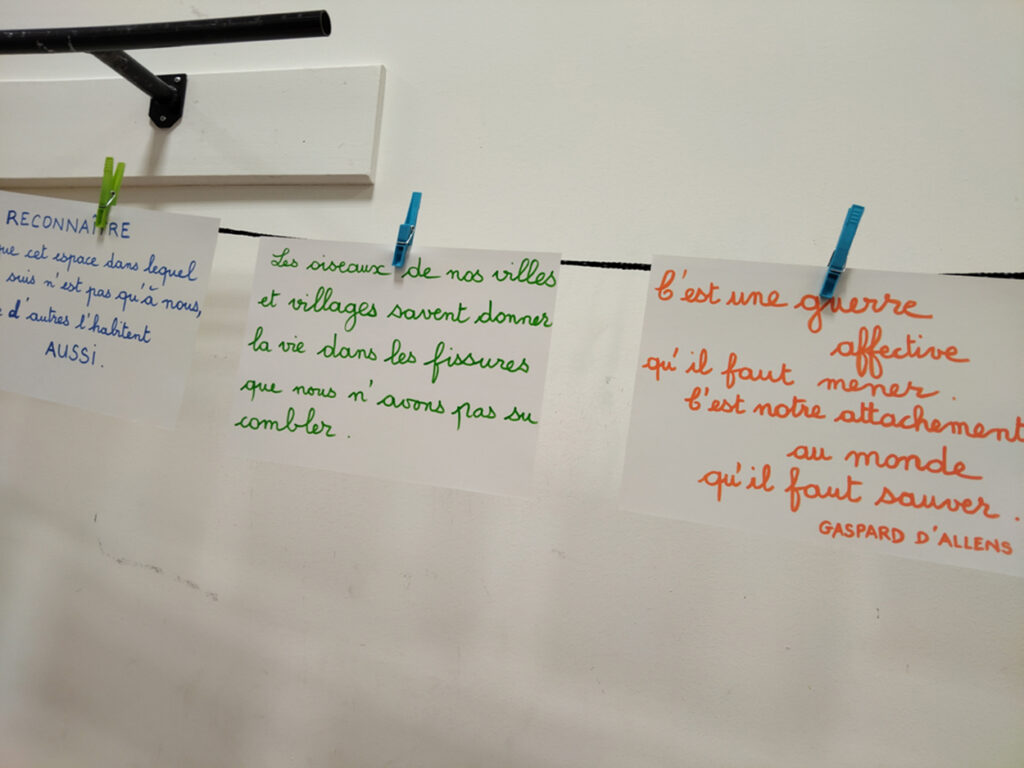 RECONNAÎTRE
cet espace dans lequel
suis n'est pas qu'à nous,
d'autres l'habitent
AUSSI.
Les oiseaux de nos villes
et villages savent donner
la vie dans les fissures
que nous n'avons pas su
combler.
C'est une guerre
affective
qu'il faut mener.
C'est notre attachement
au monde
qu'il faut sauver.
GASPARD D'ALLENS